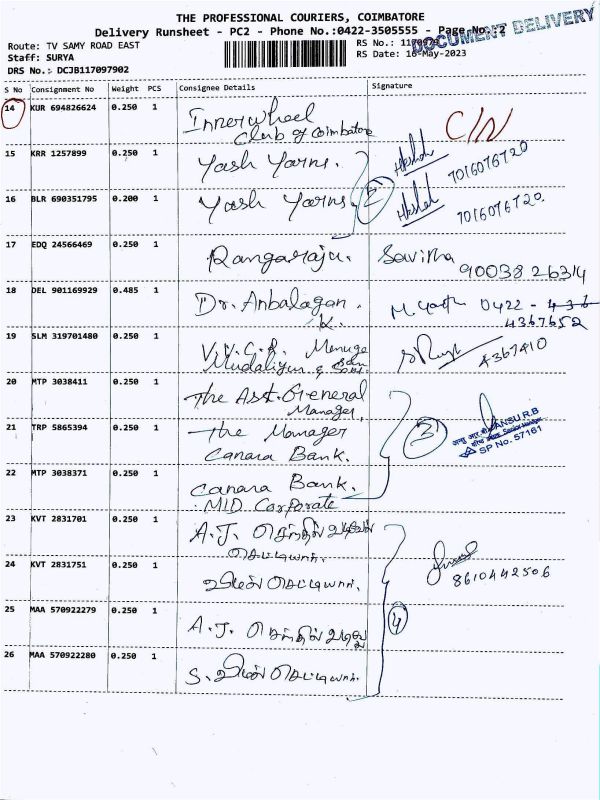 THE PROFESSIONAL COURIERS, COIMBATORE
Delivery Runsheet - PC2 - Phone No.:0422-3505555 - Page No.:2
DOCUMENT DELIVERY
Route: TV SAMY ROAD EAST
RS No.:
Staff: SURYA
RS Date: 16-May-2023
DRS No.: DCJB117097902
S No Consignment No Weight PCS Consignee Details Signature
14 KUR 694826624 0.250 1 Innerwheel
Club of Coimbatore
C/N
15 KRR 1257899 0.250 1 Yash Yarns.
7016076720
16 BLR 690351795 0.200 1 Yash Yarns
2
7016076720.
17 EDQ 24566469 0.250 1 Rangaraju. Savitha
90038 26314
18 DEL 901169929 0.485 1 Dr. Anbalagan.
K.
0422 - 436
4367652
19 SLM 319701480 0.250 1 V.V.C.R. Muruga
Mudaliyar & Sons.
4367410
20 MTP 3038411 0.250 1 The Asst. General
Manager,
21 TRP 5865394 0.250 1 The Manager
Canara Bank.
3
ANSU R.B
SP No. 57161
22 MTP 3038371 0.250 1 Canara Bank.
MID Corporate
23 KVT 2831701 0.250 1 A.J. செந்தில் வடிவேல்
செட்டியார்.
24 KVT 2831751 0.250 1 செட்டியார்.
8610442506
25 MAA 570922279 0.250 1 A.J. செந்தில் வடிவேலு
4
26 MAA 570922280 0.250 1 S. செட்டியார்.